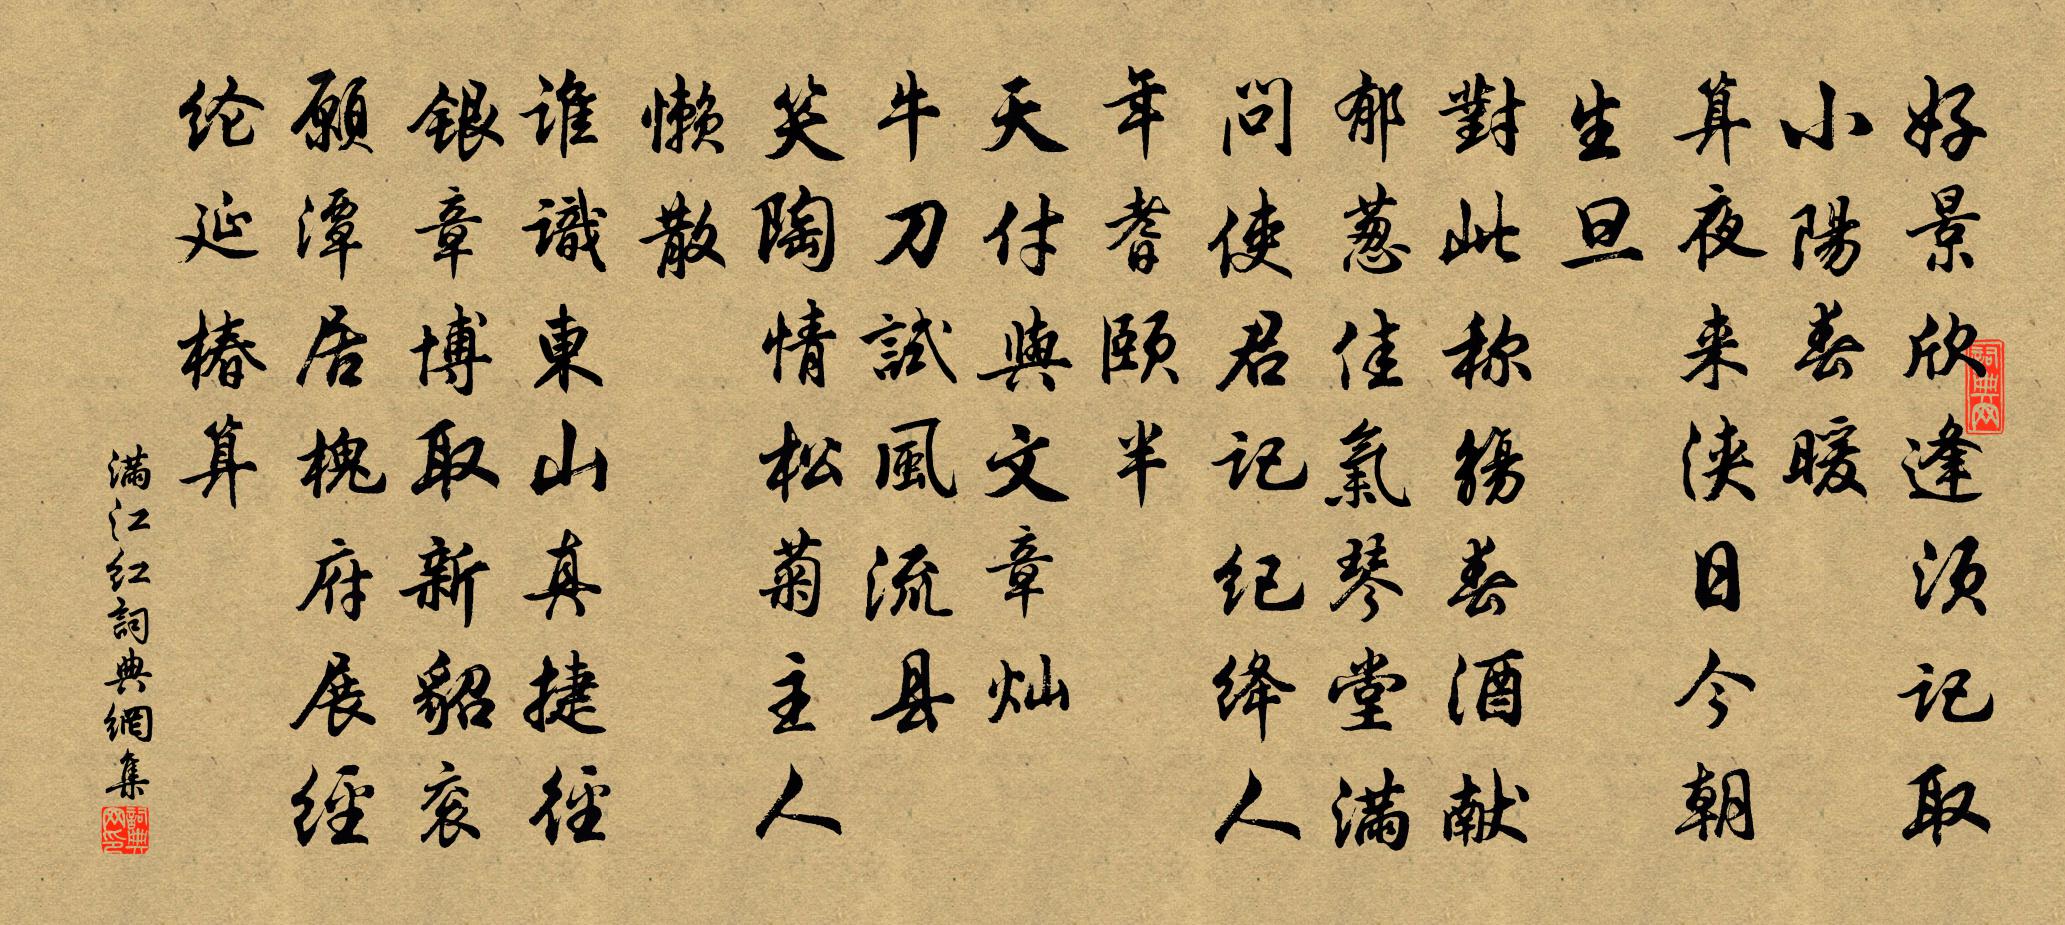 好景欣逢须记取
小陽春暖
算夜来浃日今朝
生旦
對此称觞春酒献
郁葱佳氣琴堂满
問使君记纪绛人
年耆颐半
天付與文章灿
牛刀試風流县
笑陶情松菊主人
懒散
谁識東山真捷径
銀章博取新貂衮
願潭居槐府展經
纶延椿算
满江红詞典網集
詞典网
詞典网印